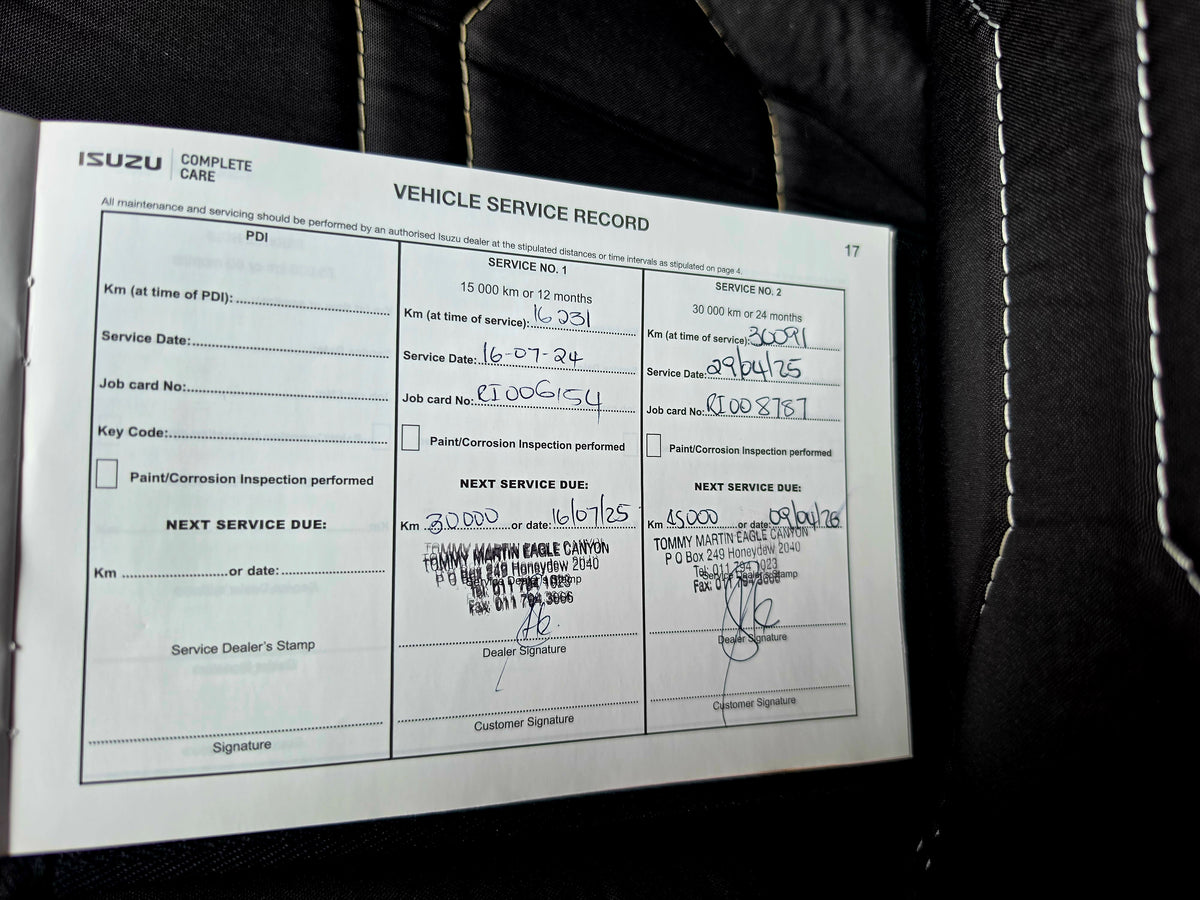 ISUZU COMPLETE CARE
VEHICLE SERVICE RECORD
17
All maintenance and servicing should be performed by an authorised Isuzu dealer at the stipulated distances or time intervals as stipulated on page 4.
PDI
Km (at time of PDI):
Service Date:
Job card No:
Key Code:
Paint/Corrosion Inspection performed
NEXT SERVICE DUE:
Km or date:
Service Dealer's Stamp
Signature
SERVICE NO. 1
15 000 km or 12 months
Km (at time of service): 16231
Service Date: 16-07-24
Job card No: RI006154
Paint/Corrosion Inspection performed
NEXT SERVICE DUE:
Km 30000 or date: 16/07/25
TOMMY MARTIN EAGLE CANYON
P O Box 249 Honeydew 2040
Service Dealer's Stamp
Tel: 011 794 1023
Fax: 011 794 3966
Dealer Signature
Customer Signature
SERVICE NO. 2
30 000 km or 24 months
Km (at time of service): 30091
Service Date: 29/04/25
Job card No: RI008787
Paint/Corrosion Inspection performed
NEXT SERVICE DUE:
Km 45000 or date: 09/04/26
TOMMY MARTIN EAGLE CANYON
P O Box 249 Honeydew 2040
Tel: 011 794 1023
Service Dealer's Stamp
Fax: 011 794 3966
Dealer Signature
Customer Signature